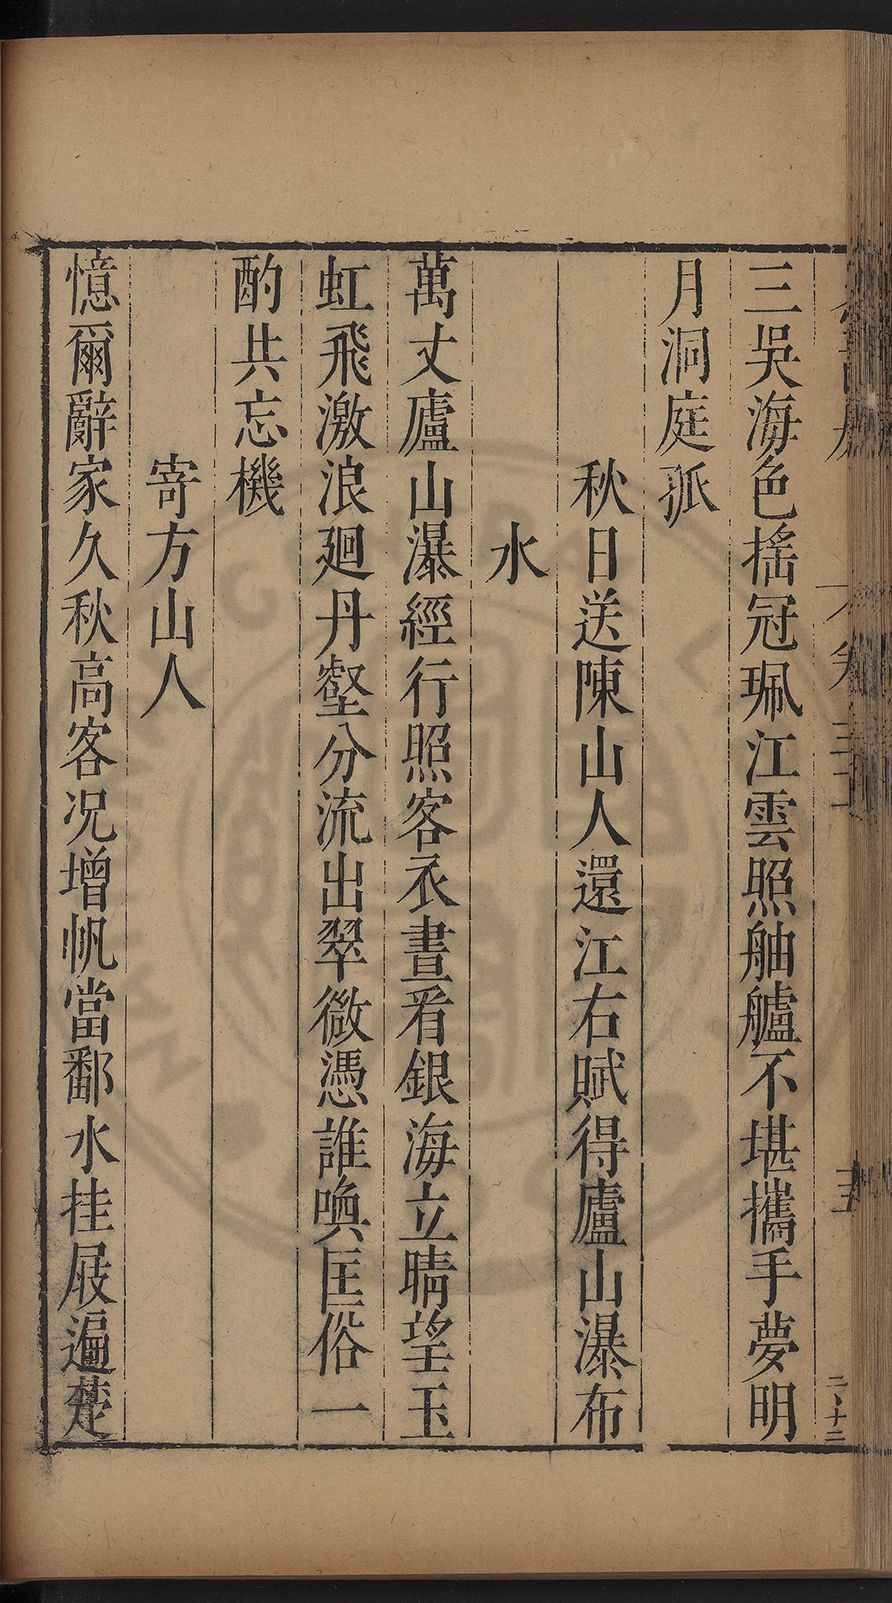 三吳海色搖冠珮江雲照舳艫不堪攜手夢明
月洞庭孤
秋日送陳山人還江右賦得廬山瀑布
水
萬丈廬山瀑經行照客衣晝看銀海立晴望玉
虹飛激浪廻丹壑分流出翠微憑誰喚匡俗一
酌共忘機
寄方山人
憶爾辭家久秋高客况增帆當鄱水挂屐遍楚